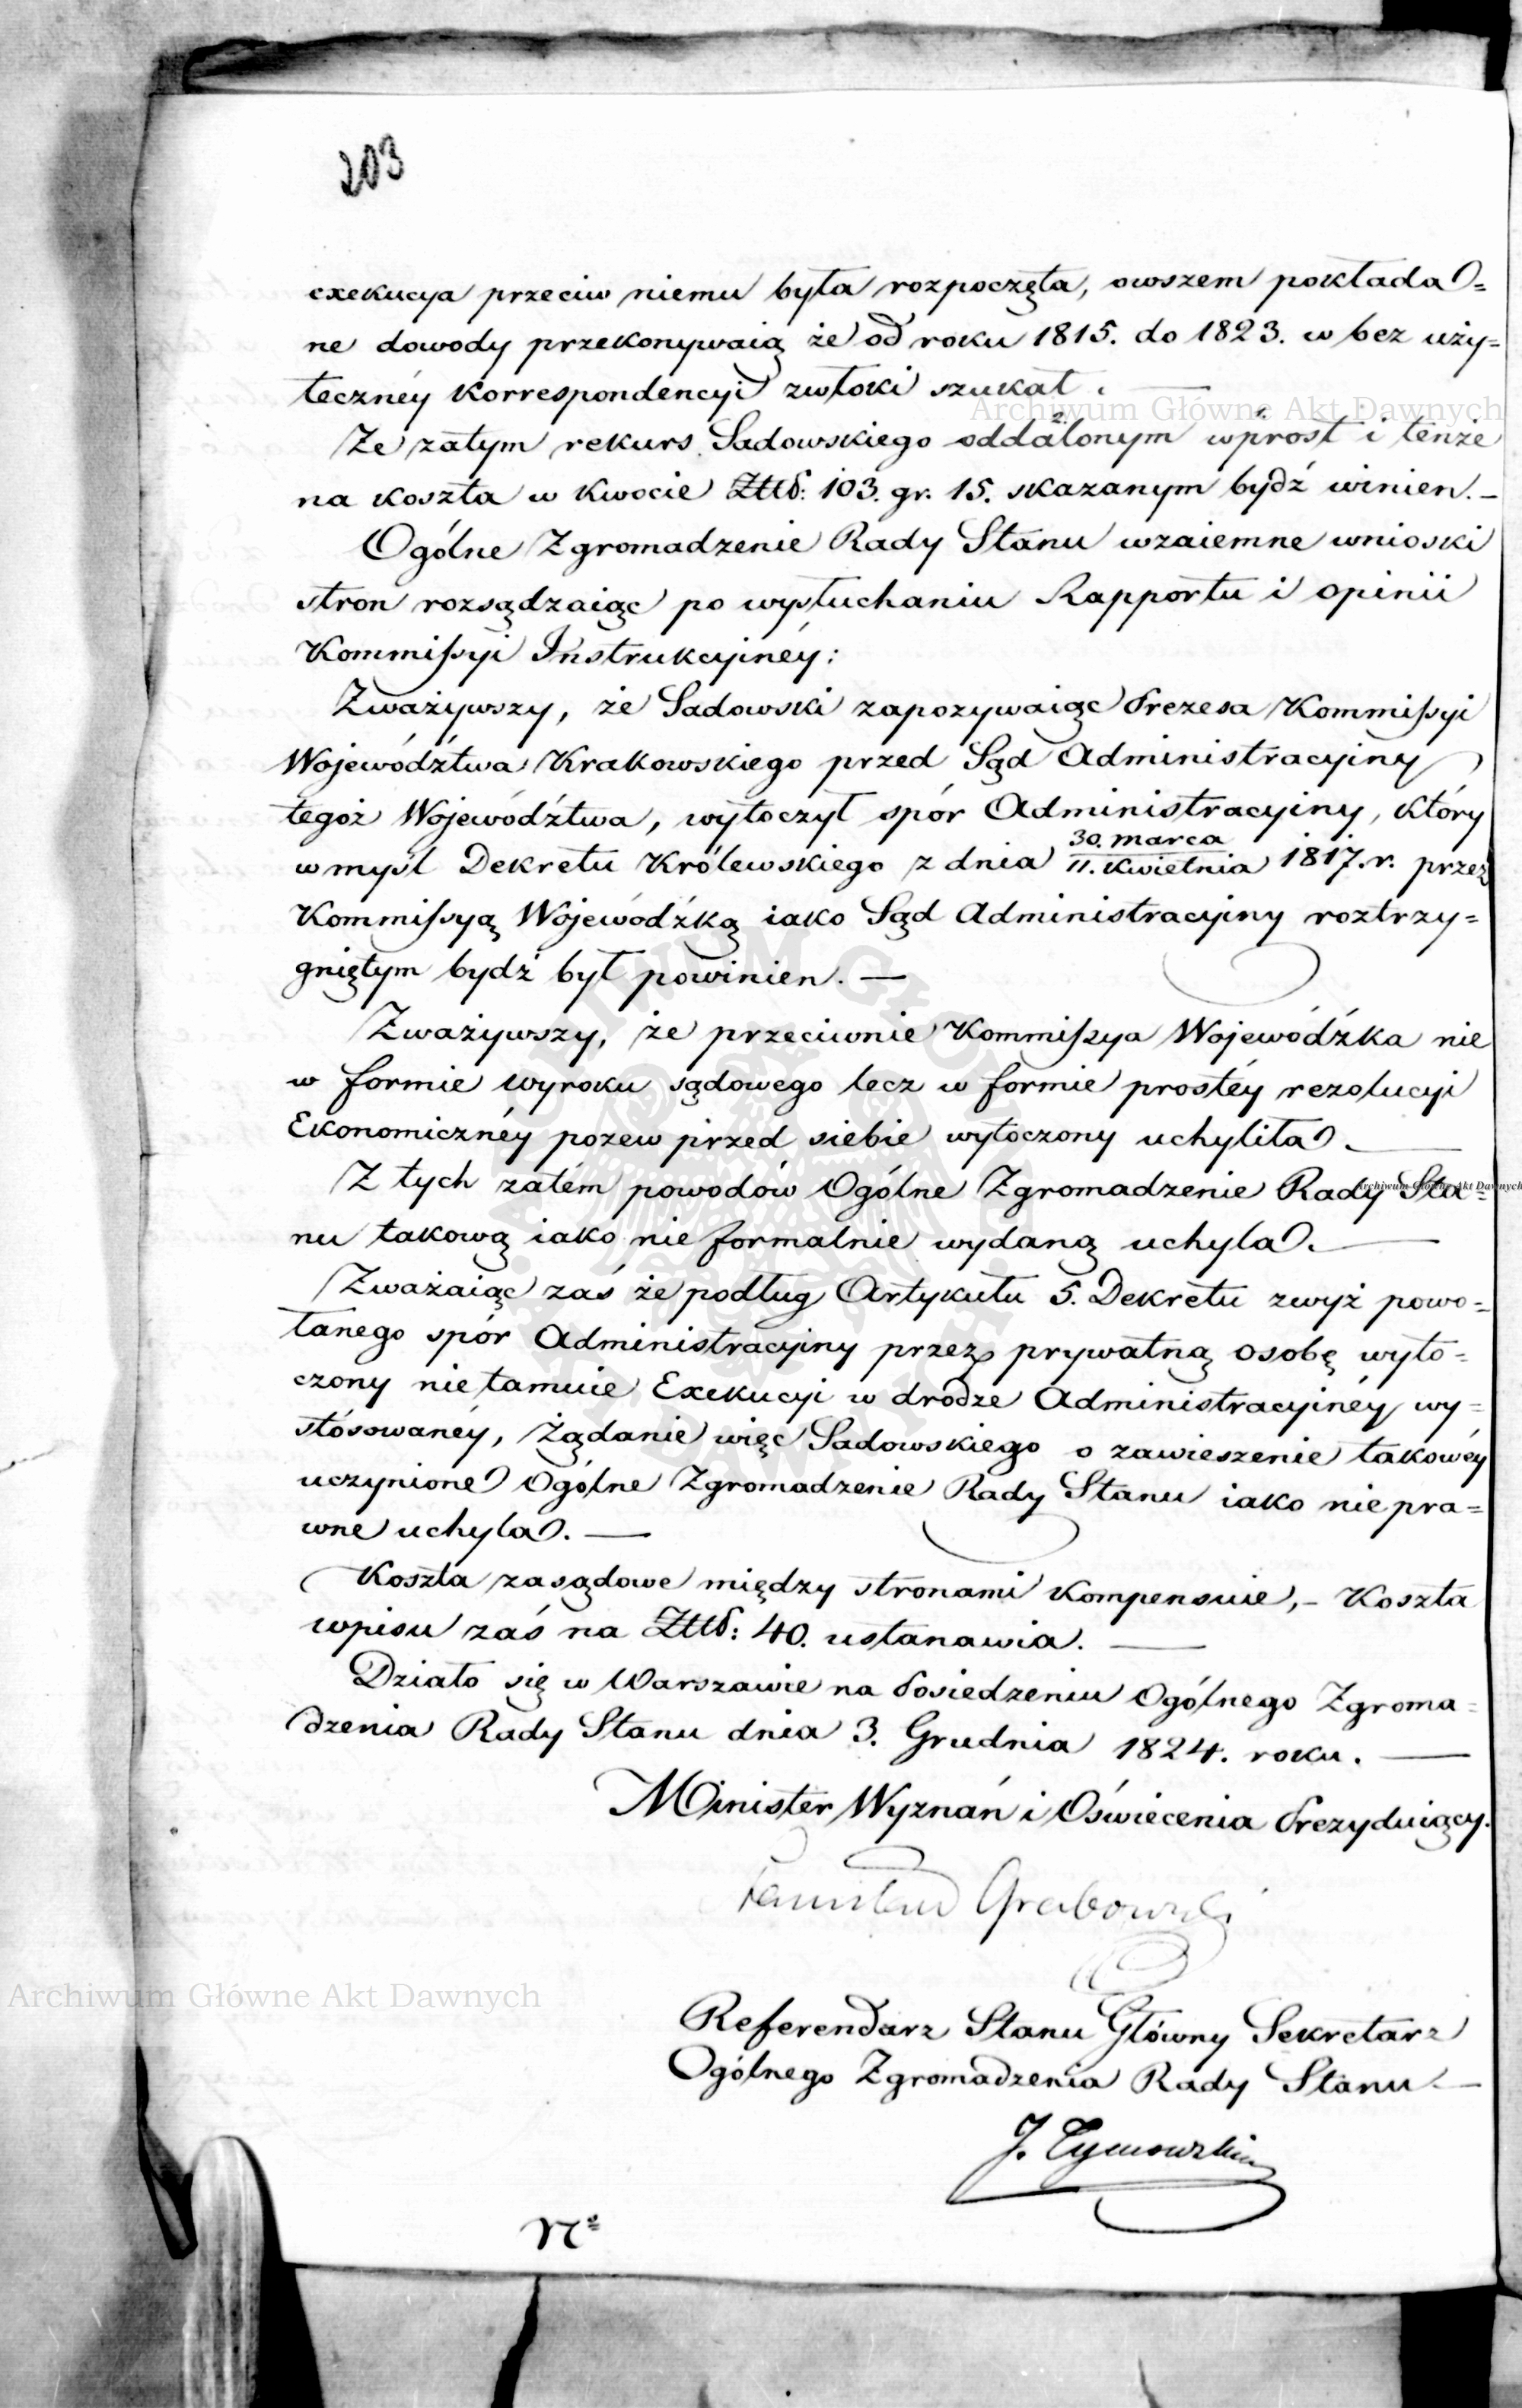 203
exekucya przeciw niemu była rozpoczęta, owszem pokłada=
ne dowody przekonywaią że od roku 1815. do 1823. w bez uży=
tecznéy korrespondencyi zwłoki szukał.
Że zatym rekurs Sadowskiego oddalonym wprost i tenże
na koszta w kwocie Złłd: 103. gr. 15. skazanym bydź winien.—
Ogólne Zgromadzenie Rady Stanu wzaiemne wnioski
stron rozsądzaiąc po wysłuchaniu Rapportu i opinii
Kommissyi Instrukcyinéy:
Zważywszy, że Sadowski zapozywaiąc Prezesa Kommissyi
Województwa Krakowskiego przed Sąd Administracyiny
tegoż Województwa, wytoczył spór Administracyiny, który
w myśl Dekretu Królewskiego z dnia 30. marca
11. kwietnia 1817. r. przez
Kommissyą Wojewódźką iako Sąd Administracyiny roztrzy=
gniętym bydź był powinien.—
Zważywszy, że przeciwnie Kommissya Wojewódźka nie
w formie wyroku sądowego lecz w formie prostéy rezolucyi
Ekonomicznéy pozew przed siebie wytoczony uchyliła.—
Z tych zatém powodów Ogólne Zgromadzenie Rady Sta=
nu takową iako nie formalnie wydaną uchyla.—
Zważaiąc zaś że podług Artykułu 5. Dekretu zwyż powo=
łanego spór Administracyiny przez prywatną osobę wyto=
czony nie tamuie Exekucyi w drodze Administracyinéy wy=
stósowanéy, Żądanie więc Sadowskiego o zawieszenie takowéy
uczynione Ogólne Zgromadzenie Rady Stanu iako nie pra=
wne uchyla.—
Koszta zasądowe między stronami kompensuie,— Koszta
wpisu zaś na Złłd: 40. ustanawia.—
Działo się w Warszawie na Posiedzeniu Ogólnego Zgroma=
dzenia Rady Stanu dnia 3. Grudnia 1824. roku.—
Minister Wyznań i Oświecenia Prezyduiący.
Stanisław Grabowski
Referendarz Stanu Główny Sekretarz
Ogólnego Zgromadzenia Rady Stanu—
J. Tymowski
No
Archiwum Główne Akt Dawnych
Archiwum Główne Akt Dawnych
Archiwum Główne Akt Dawnych